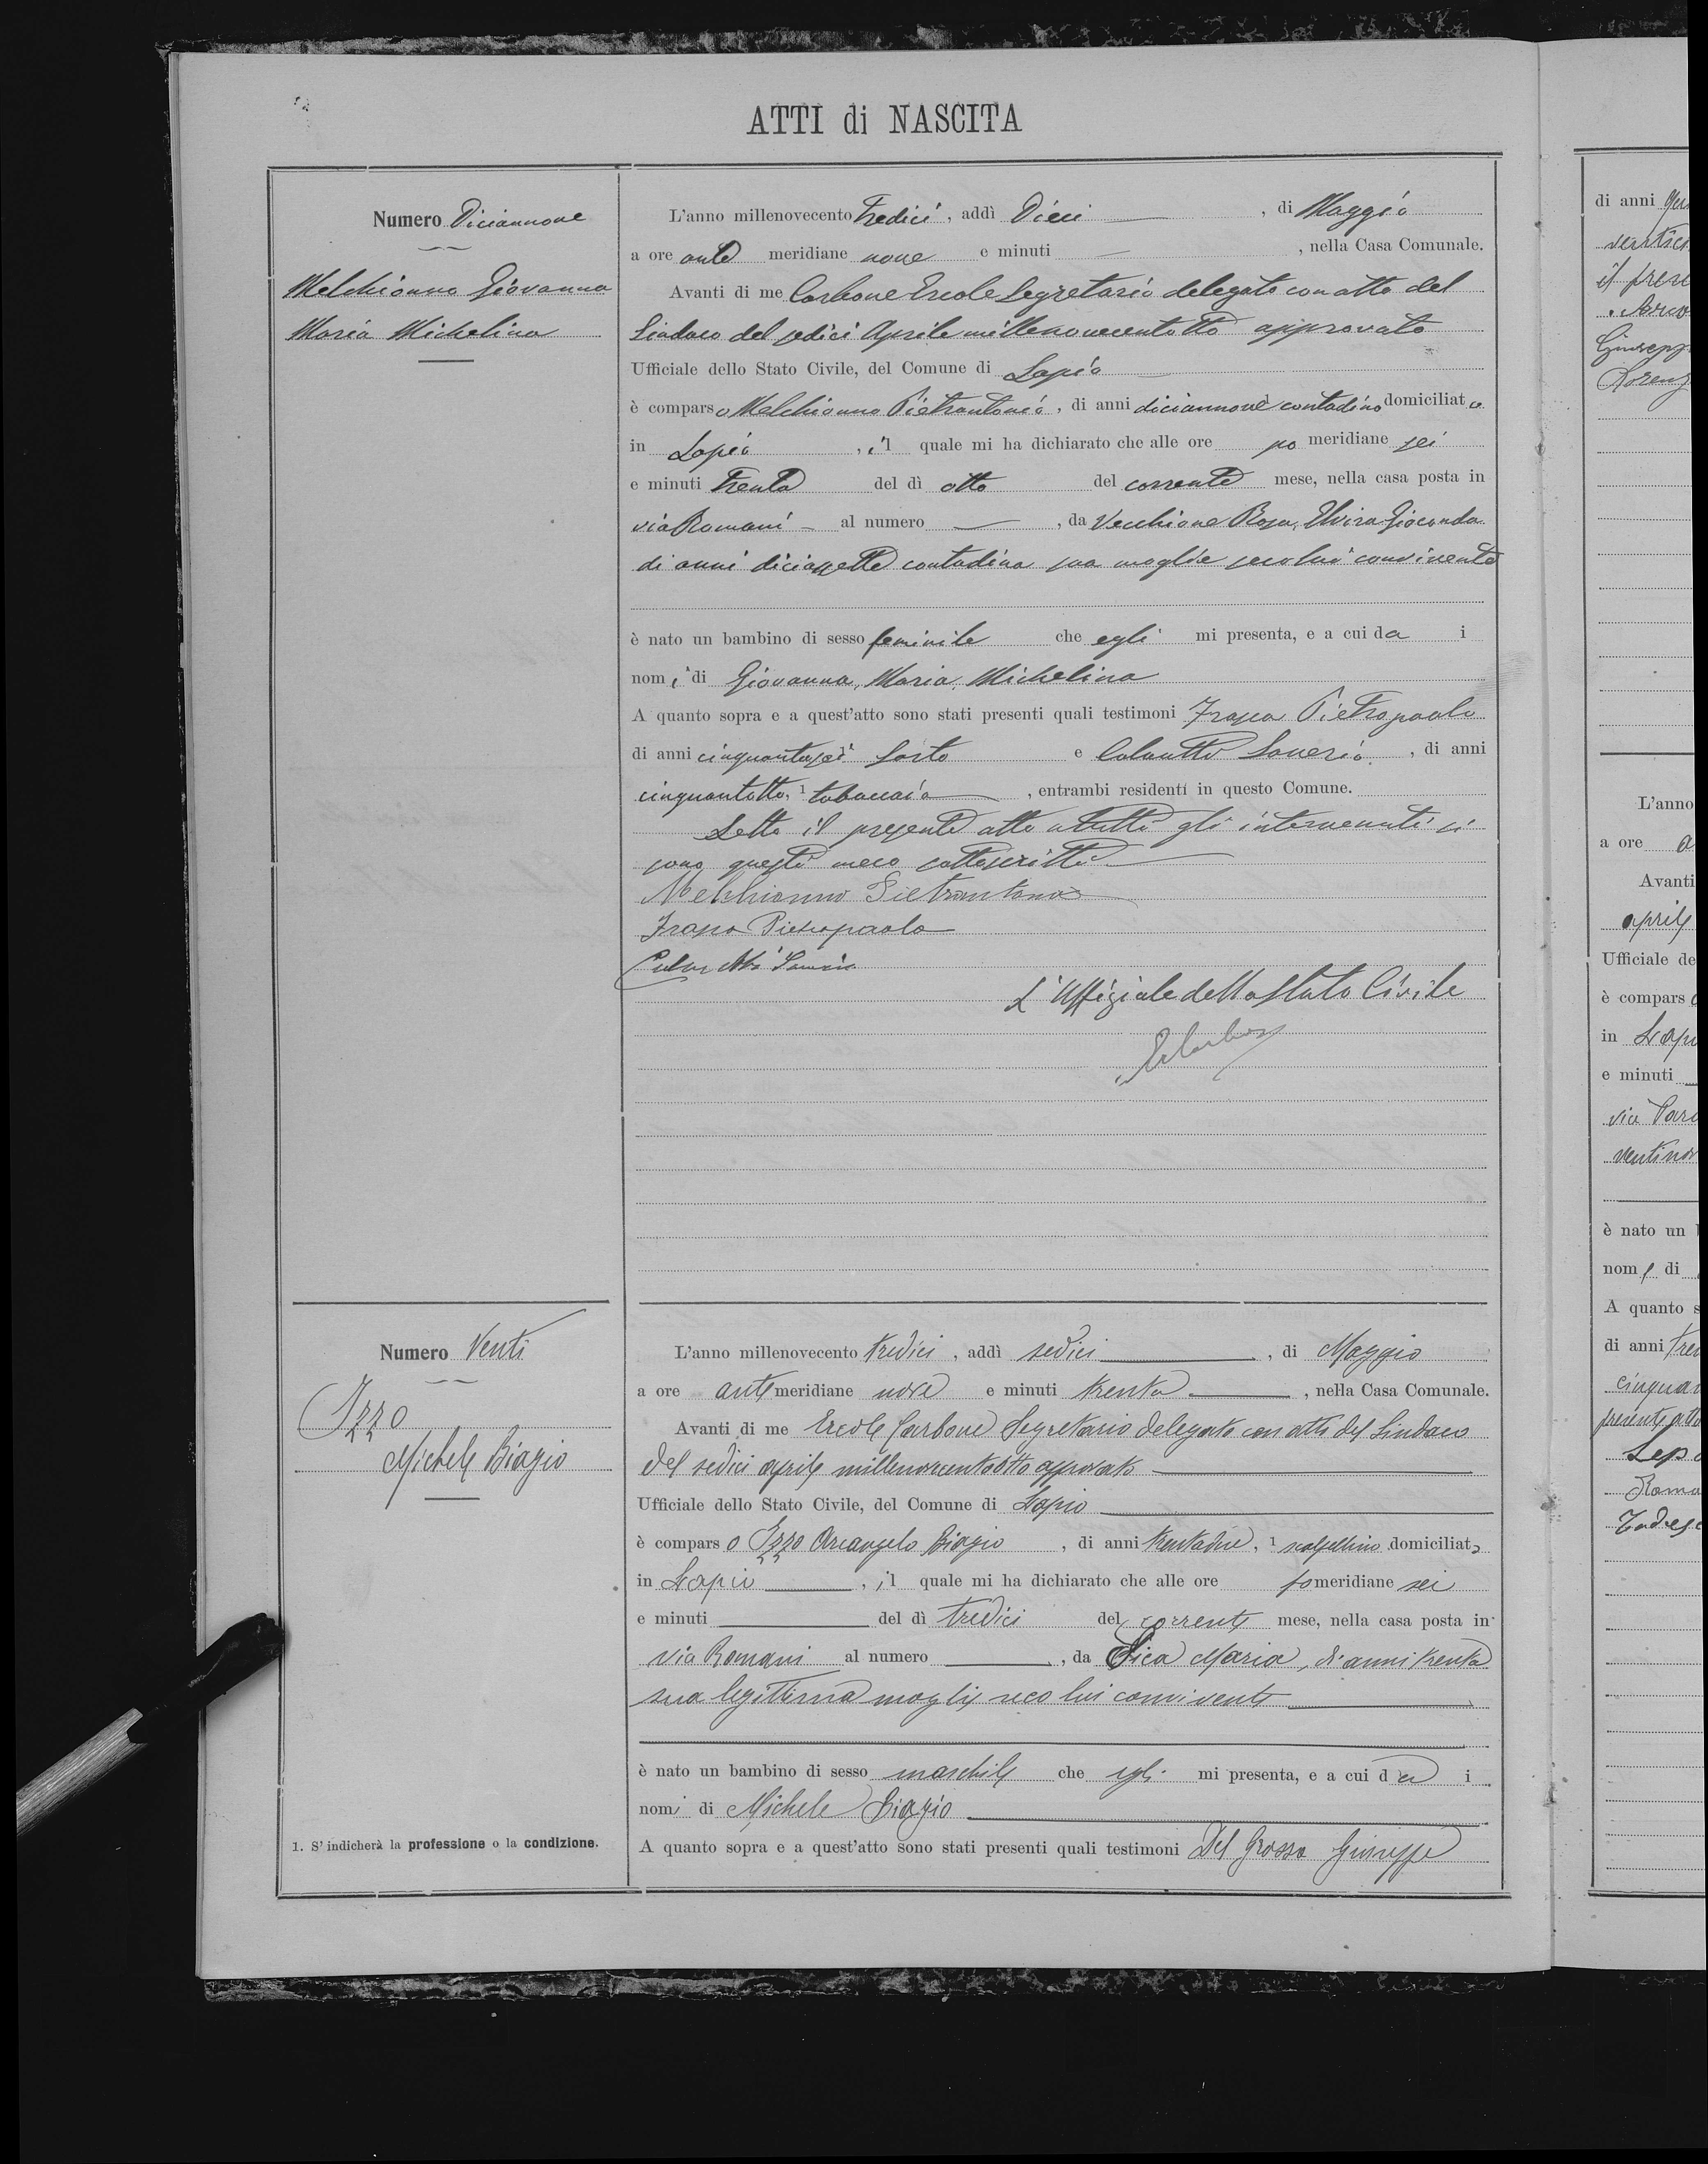 ATTI di NASCITA
Numero Diciannove
Melchionna Giovanna
Maria Michelina
L'anno millenovecento Tredici, addì Dieci, di Maggio
a ore ante meridiane nove e minuti —, nella Casa Comunale.
Avanti di me Carbone Ercole Segretario delegato con atto del
Sindaco del sedici Aprile millenovecentotto approvato
Ufficiale dello Stato Civile, del Comune di Lapio
è comparso Melchionna Pietrantonio, di anni diciannove contadino domiciliato
in Lapio, il quale mi ha dichiarato che alle ore po meridiane sei
e minuti Trenta del dì otto del corrente mese, nella casa posta in
via Romani — al numero —, da Vecchione Rosa, Elvira Gioconda
di anni diciassette contadina sua moglie seco lui convivente
è nato un bambino di sesso feminile che egli mi presenta, e a cui da i
nomi di Giovanna, Maria, Michelina
A quanto sopra e a quest'atto sono stati presenti quali testimoni Frasca Pietropaolo
di anni cinquantasei Sarto e Colantti Saverio, di anni
cinquantotto, 1 tabaccaio, entrambi residenti in questo Comune.
Letto il presente atto a tutti gli intervenuti si
sono questi meco sottoscritti
Melchionno Pietrantonio
Pietropaolo
L'Uffiziale dello Stato Civile
Numero Venti
Izzo
Michele Biagio
L'anno millenovecento tredici, addì sedici, di Maggio
a ore ante meridiane nove e minuti trenta, nella Casa Comunale.
Avanti di me Ercole Carbone Segretario delegato con atto del Sindaco
del sedici aprile millenovecentootto approvato
Ufficiale dello Stato Civile, del Comune di Lapio
è comparso Izzo Arcangelo Biagio, di anni trentadue, 1 scalpellino domiciliato
in Lapio, il quale mi ha dichiarato che alle ore pomeridiane sei
e minuti — del dì tredici del corrente mese, nella casa posta in
via Romani al numero —, da Sica Maria, di anni trenta
sua legittima moglie seco lui convivente
è nato un bambino di sesso maschile che egli mi presenta, e a cui da i
nomi di Michele Biagio
A quanto sopra e a quest'atto sono stati presenti quali testimoni Del Grosso Giuseppe
1. S'indicherà la professione o la condizione.
di anni
il
Giusepp
Lorenz
L'anno
a ore a
Avanti
aprile
Ufficiale de
è compars
in Lapi
e minuti
via
ventinov
è nato un
nome di
A quanto s
di anni tre
cinquan
presente atto